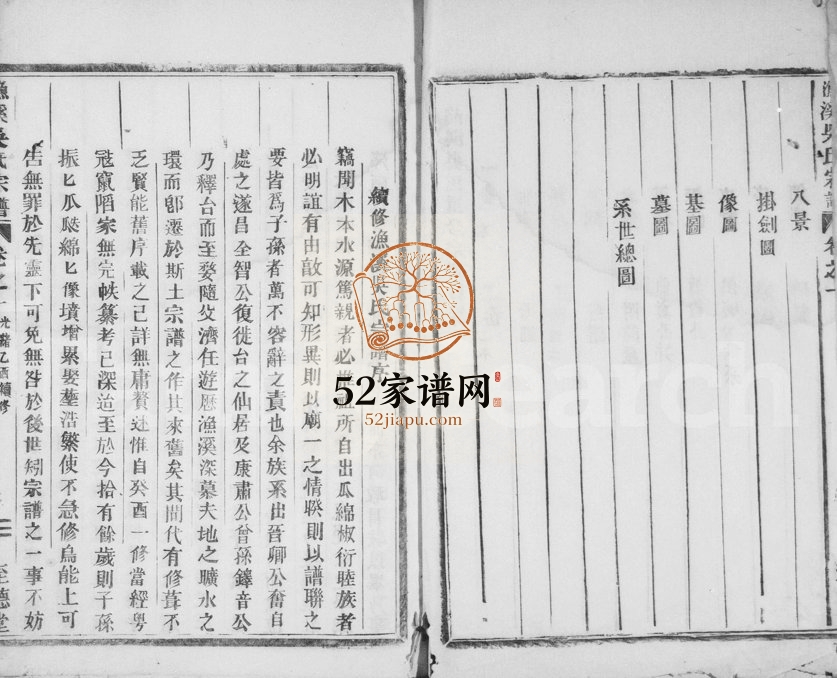 漁溪吳氏宗譜 卷之一
八景
掛劍圖
像圖
基圖
墓圖
系世總圖
續修漁溪吳氏宗譜序
竊聞木本水源篤親者必 所自出瓜綿椒衍睦族者
必明誼有由敢可知形異則以廟一之情睽則以譜聯之
要皆爲子孫者萬不容辭之責也余族系出晉卿公奮自
處之遂昌全智公復徙台之仙居及康肅公曾孫鐸音公
乃釋台而至婺隨父濟任遊歷漁溪深慕夫地之曠水之
環而郎遷於斯土宗譜之作其來舊矣其間代有修葺不
乏賢能舊序載之已詳無庸贅述惟自癸酉一修當經粵
寇竄陷家無完帙纂考已深迨至於今拾有餘歲則子孫
振匕瓜瓞綿匕像墳增累娶塟浩繁使不急修烏能上可
告無罪於先靈下可免無咎於後世矧宗譜之一事不妨
漁溪吳氏宗譜 卷之一 光緒乙酉續修 二 至德堂
52家谱网
52jiapu.com
earch